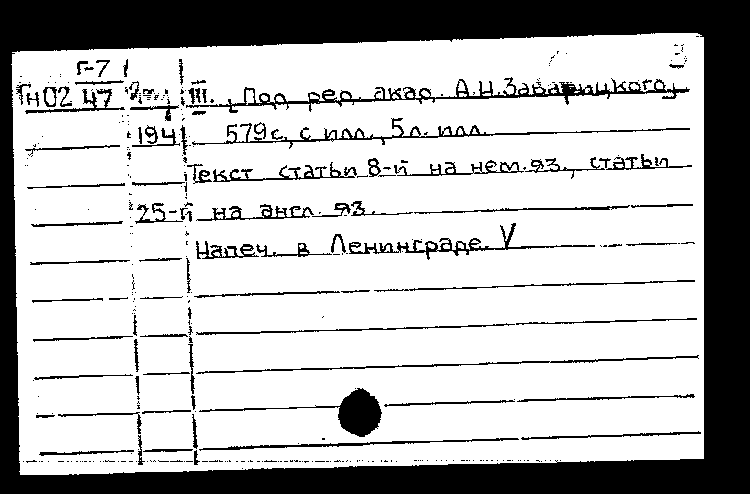 3
Г-7
Гн02 47 III. Под ред. акад. А.Н.Заварицкого,
1941 579 с., с илл., 5 л. илл.
Текст статьи 8-й на нем.яз., статьи
25-й на англ. яз.
Напеч. в Ленинграде. V